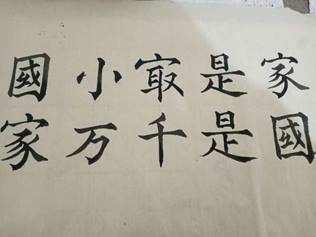 家是㝡小國
國是千万家